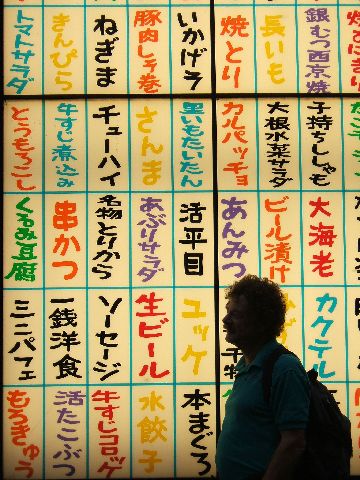 焼とり
長いも
銀むつ西京焼
いかげそ
豚肉しそ巻
ねぎま
きんぴら
トマトサラダ
子持ちししゃも
大根水菜サラダ
カルパッチョ
黒いもたいたん
さんま
チューハイ
牛すじ煮込み
とうもろこし
大海老
ビール漬け
あんみつ
活平目
あぶりサラダ
名物とりから
串かつ
くるみ豆腐
カクテル
ユッケ
生ビール
ソーセージ
一銭洋食
ミニパフェ
本まぐろ
水餃子
牛すじコロッケ
活たこぶつ
もろきゅう